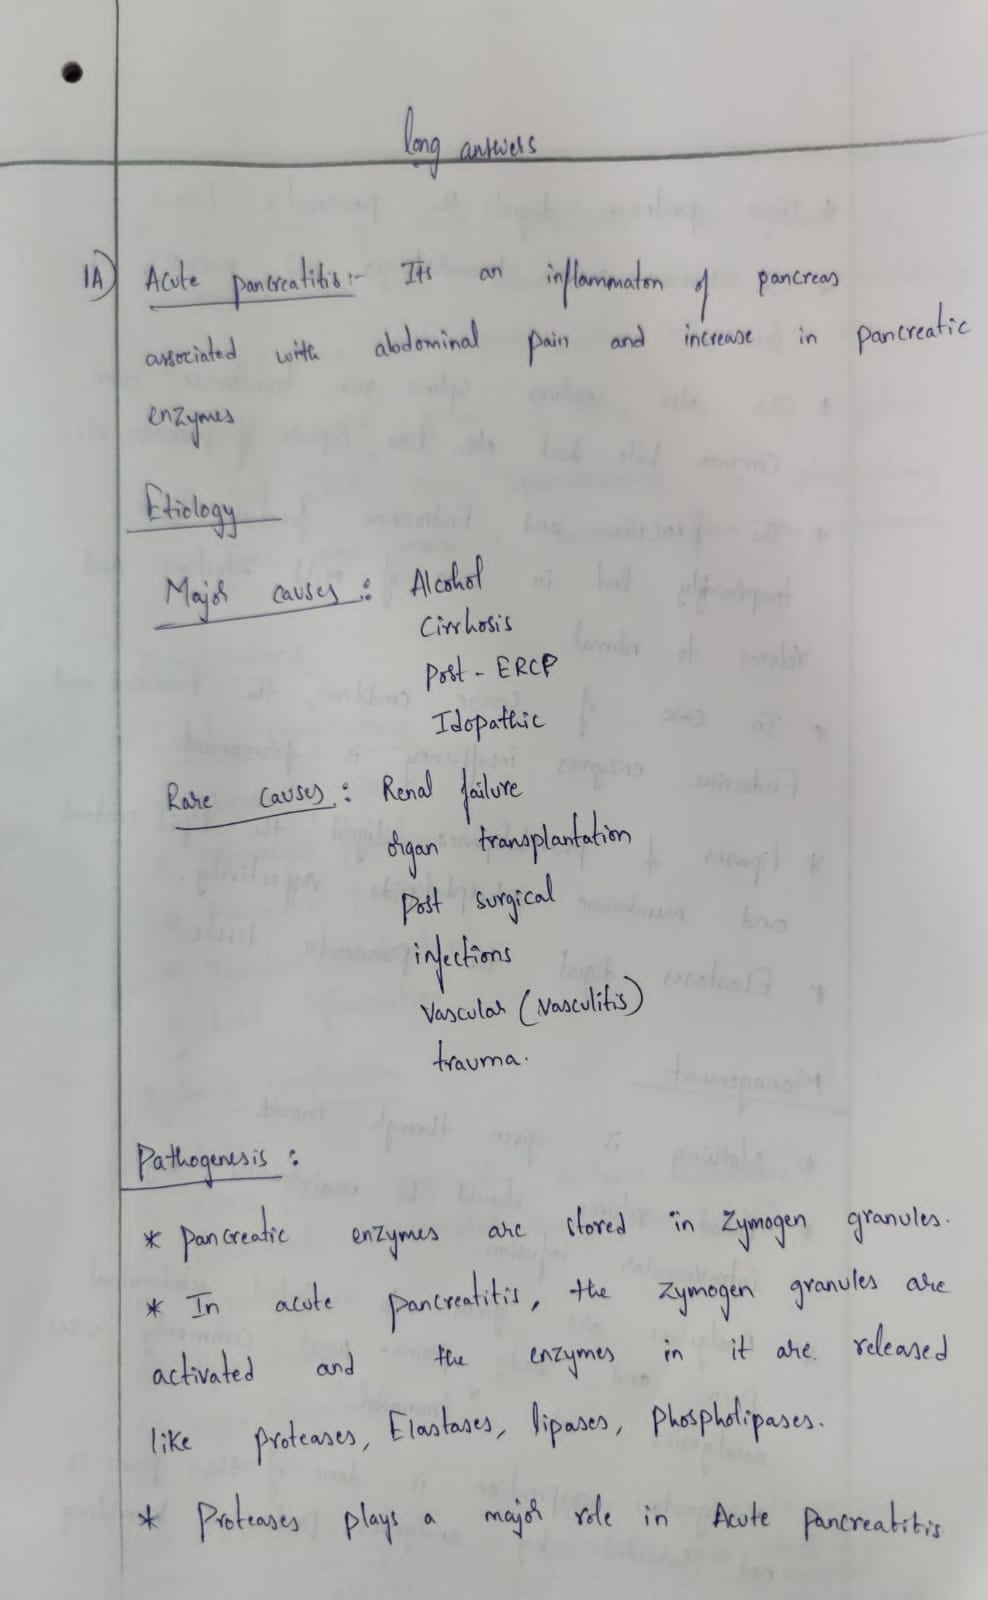 long answers
1A) Acute pancreatitis:- Its an inflammaton of pancreas
associated with abdominal pain and increase in pancreatic
enzymes
Etiology
Major causes : Alcohol
Cirrhosis
Post - ERCP
Idopathic
Rare causes : Renal failure
organ transplantation
Post surgical
infections
Vascular (vasculitis)
trauma.
Pathogenesis :
* Pancreatic enzymes are stored in Zymogen granules.
* In acute pancreatitis, the Zymogen granules are
activated and the enzymes in it are released
like proteases, Elastases, lipases, phospholipases.
* Proteases plays a major role in Acute pancreatitis